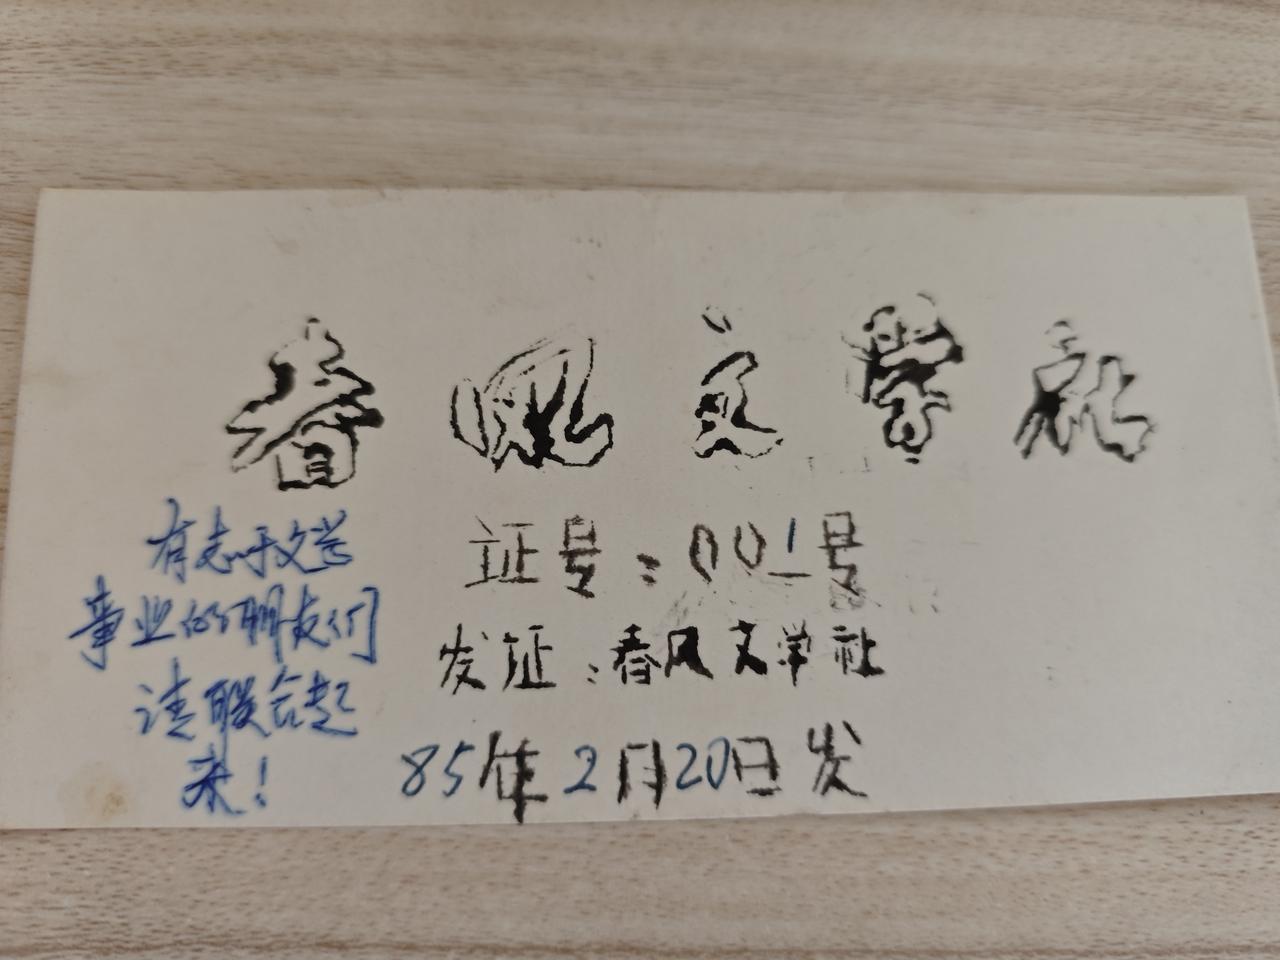 春风文学社
证号：001号
发证：春风文学社
85年2月20日发
有志于文艺
事业的朋友们
请联合起
来！